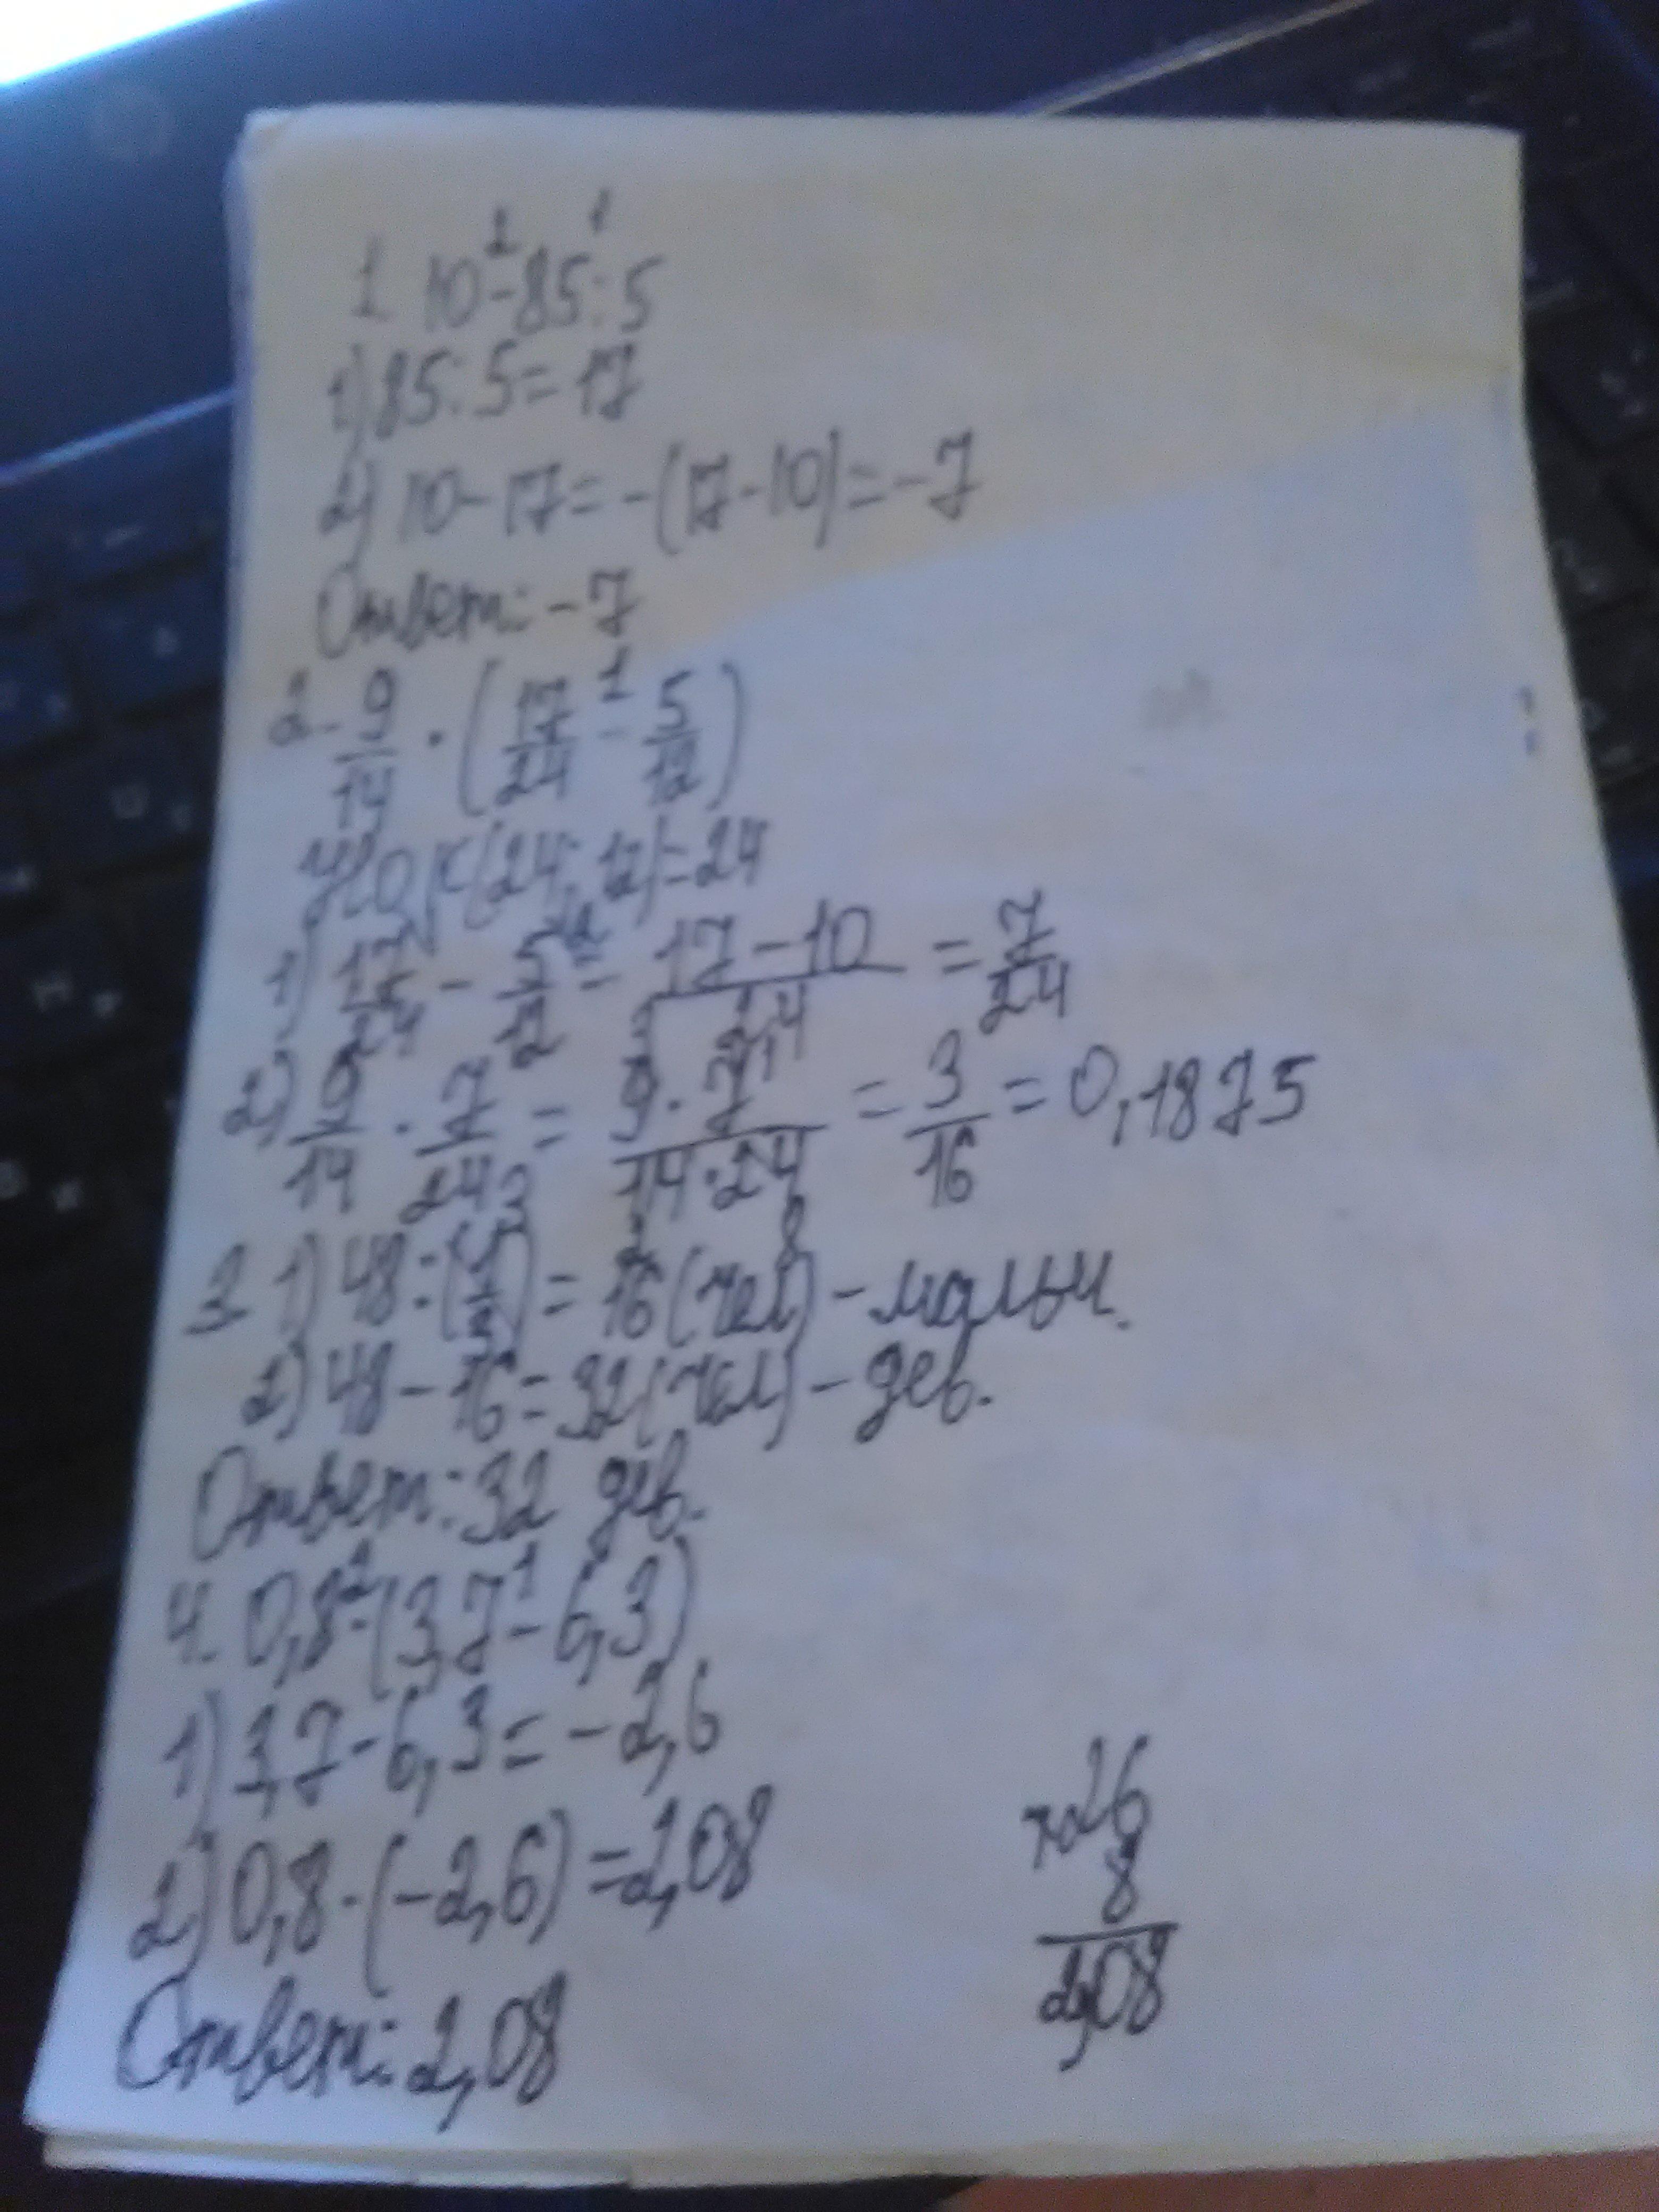 1 10 - 85 : 5
2 1
1) 85 : 5 = 17
2) 10 - 17 = -(17 - 10) = -7
Ответ: -7
2. 9/14 · (17/24 - 5/12)
1
НОК(24; 12) = 24
1) 17/24 - 5/12 = (17 - 10)/24 = 7/24
2) 9/14 · 7/24 = (9 · 7)/(14 · 24) = 3/16 = 0,1875
3 1) 48 : (1/3) = 16 (чел) - мальч.
2) 48 - 16 = 32 (чел) - дев.
Ответ: 32 дев.
4. 0,8 · (3,7 - 6,3)
2 1
1) 3,7 - 6,3 = -2,6
2) 0,8 · (-2,6) = 2,08
26
8
2,08
Ответ: 2,08